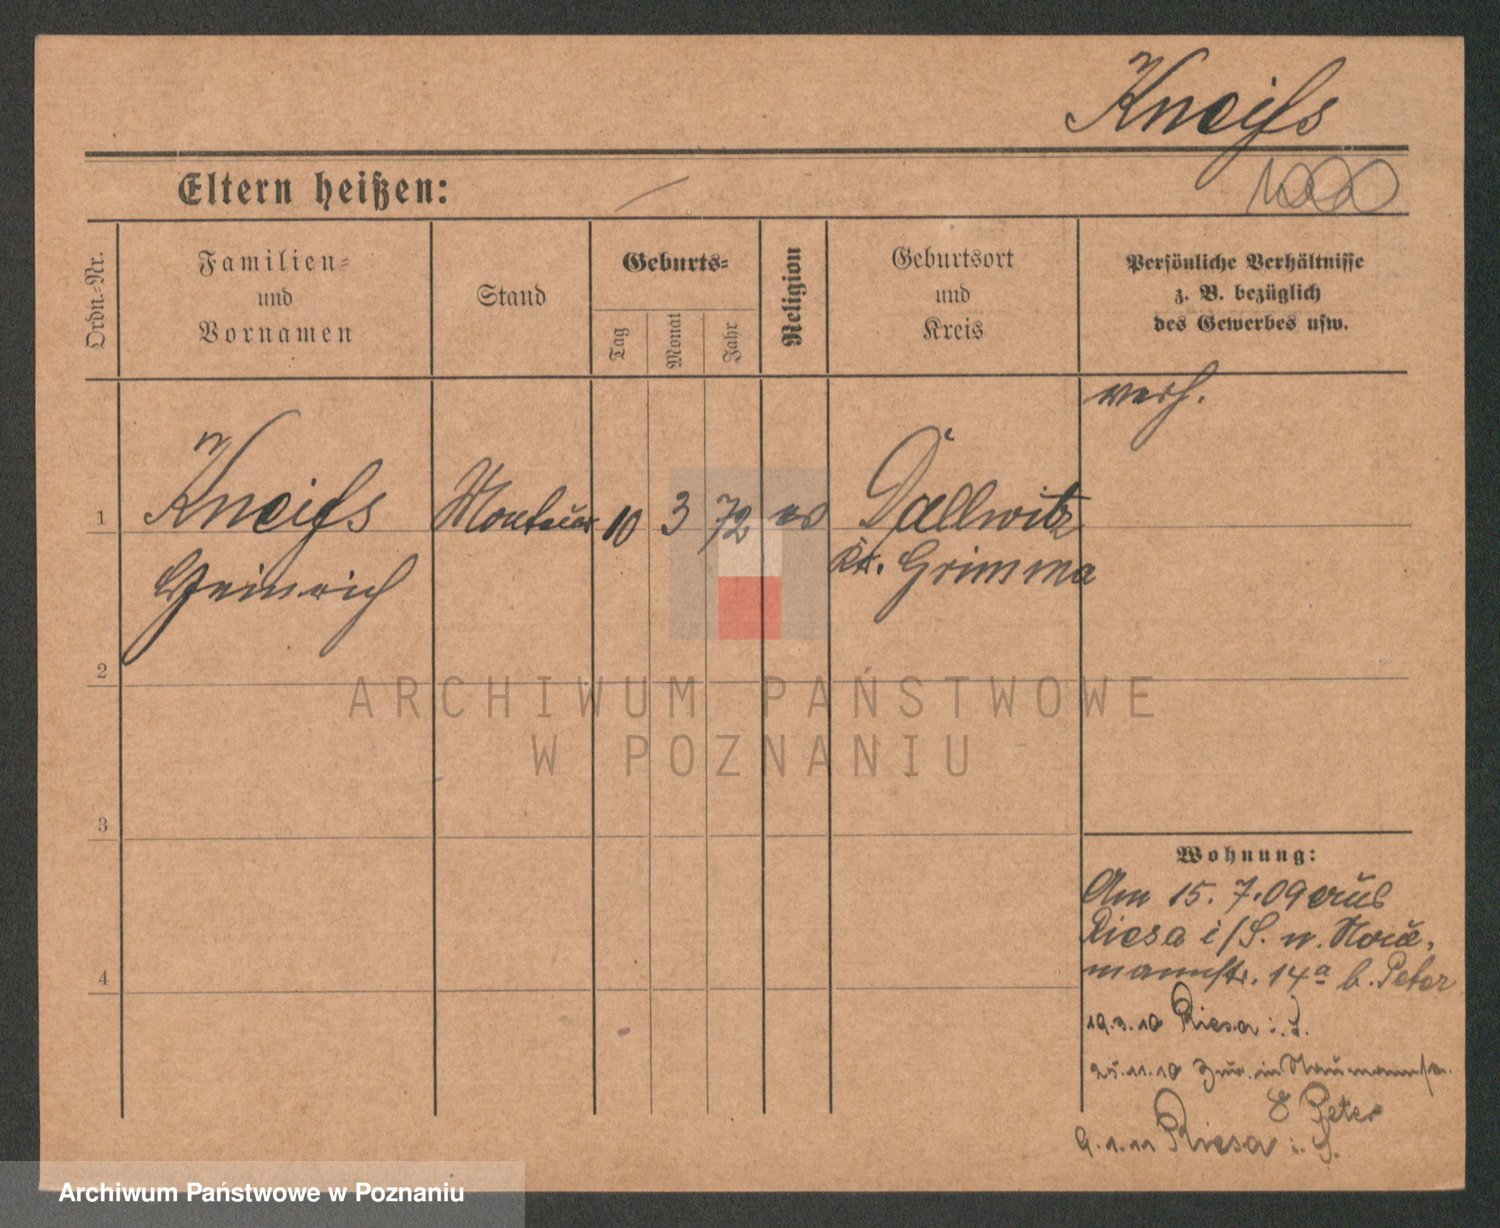 Kneiſs
Eltern heißen:
Ordn.-Nr.
Familien-
und
Vornamen
Stand
Geburts-
Tag
Monat
Jahr
Religion
Geburtsort
und
Kreis
Persönliche Verhältnisse
z. B. bezüglich
des Gewerbes usw.
verh.
1
Kneiſs
Heinrich
Monteur
10
3
72
ev
Dallwitz
Kr. Grimma
2
3
4
Wohnung:
Am 15. 7. 09 aus
Riesa i/S. n. Nau-
mannstr. 14a b. Peter
19.3.10 Riesa i. S.
25.11.10 Zur. in Naumannstr.
8 Peter
9.1.11 Riesa i. S.
ARCHIWUM PAŃSTWOWE
W POZNANIU
Archiwum Państwowe w Poznaniu